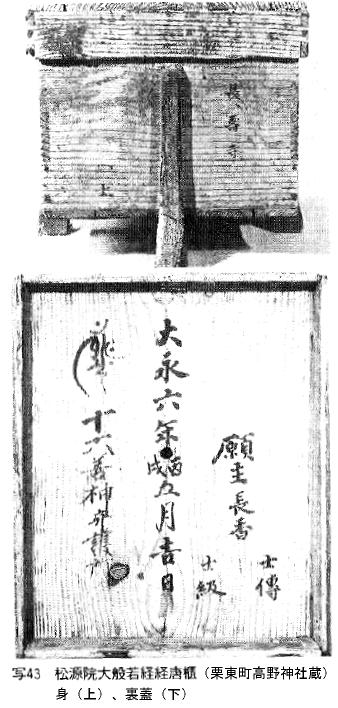 長壽寺
上
願主長
士傳
士級
大永六年丙戌五月吉日
十六善神守護
写43 松源院大般若経経唐櫃（栗東町高野神社蔵）
身（上）、裏蓋（下）